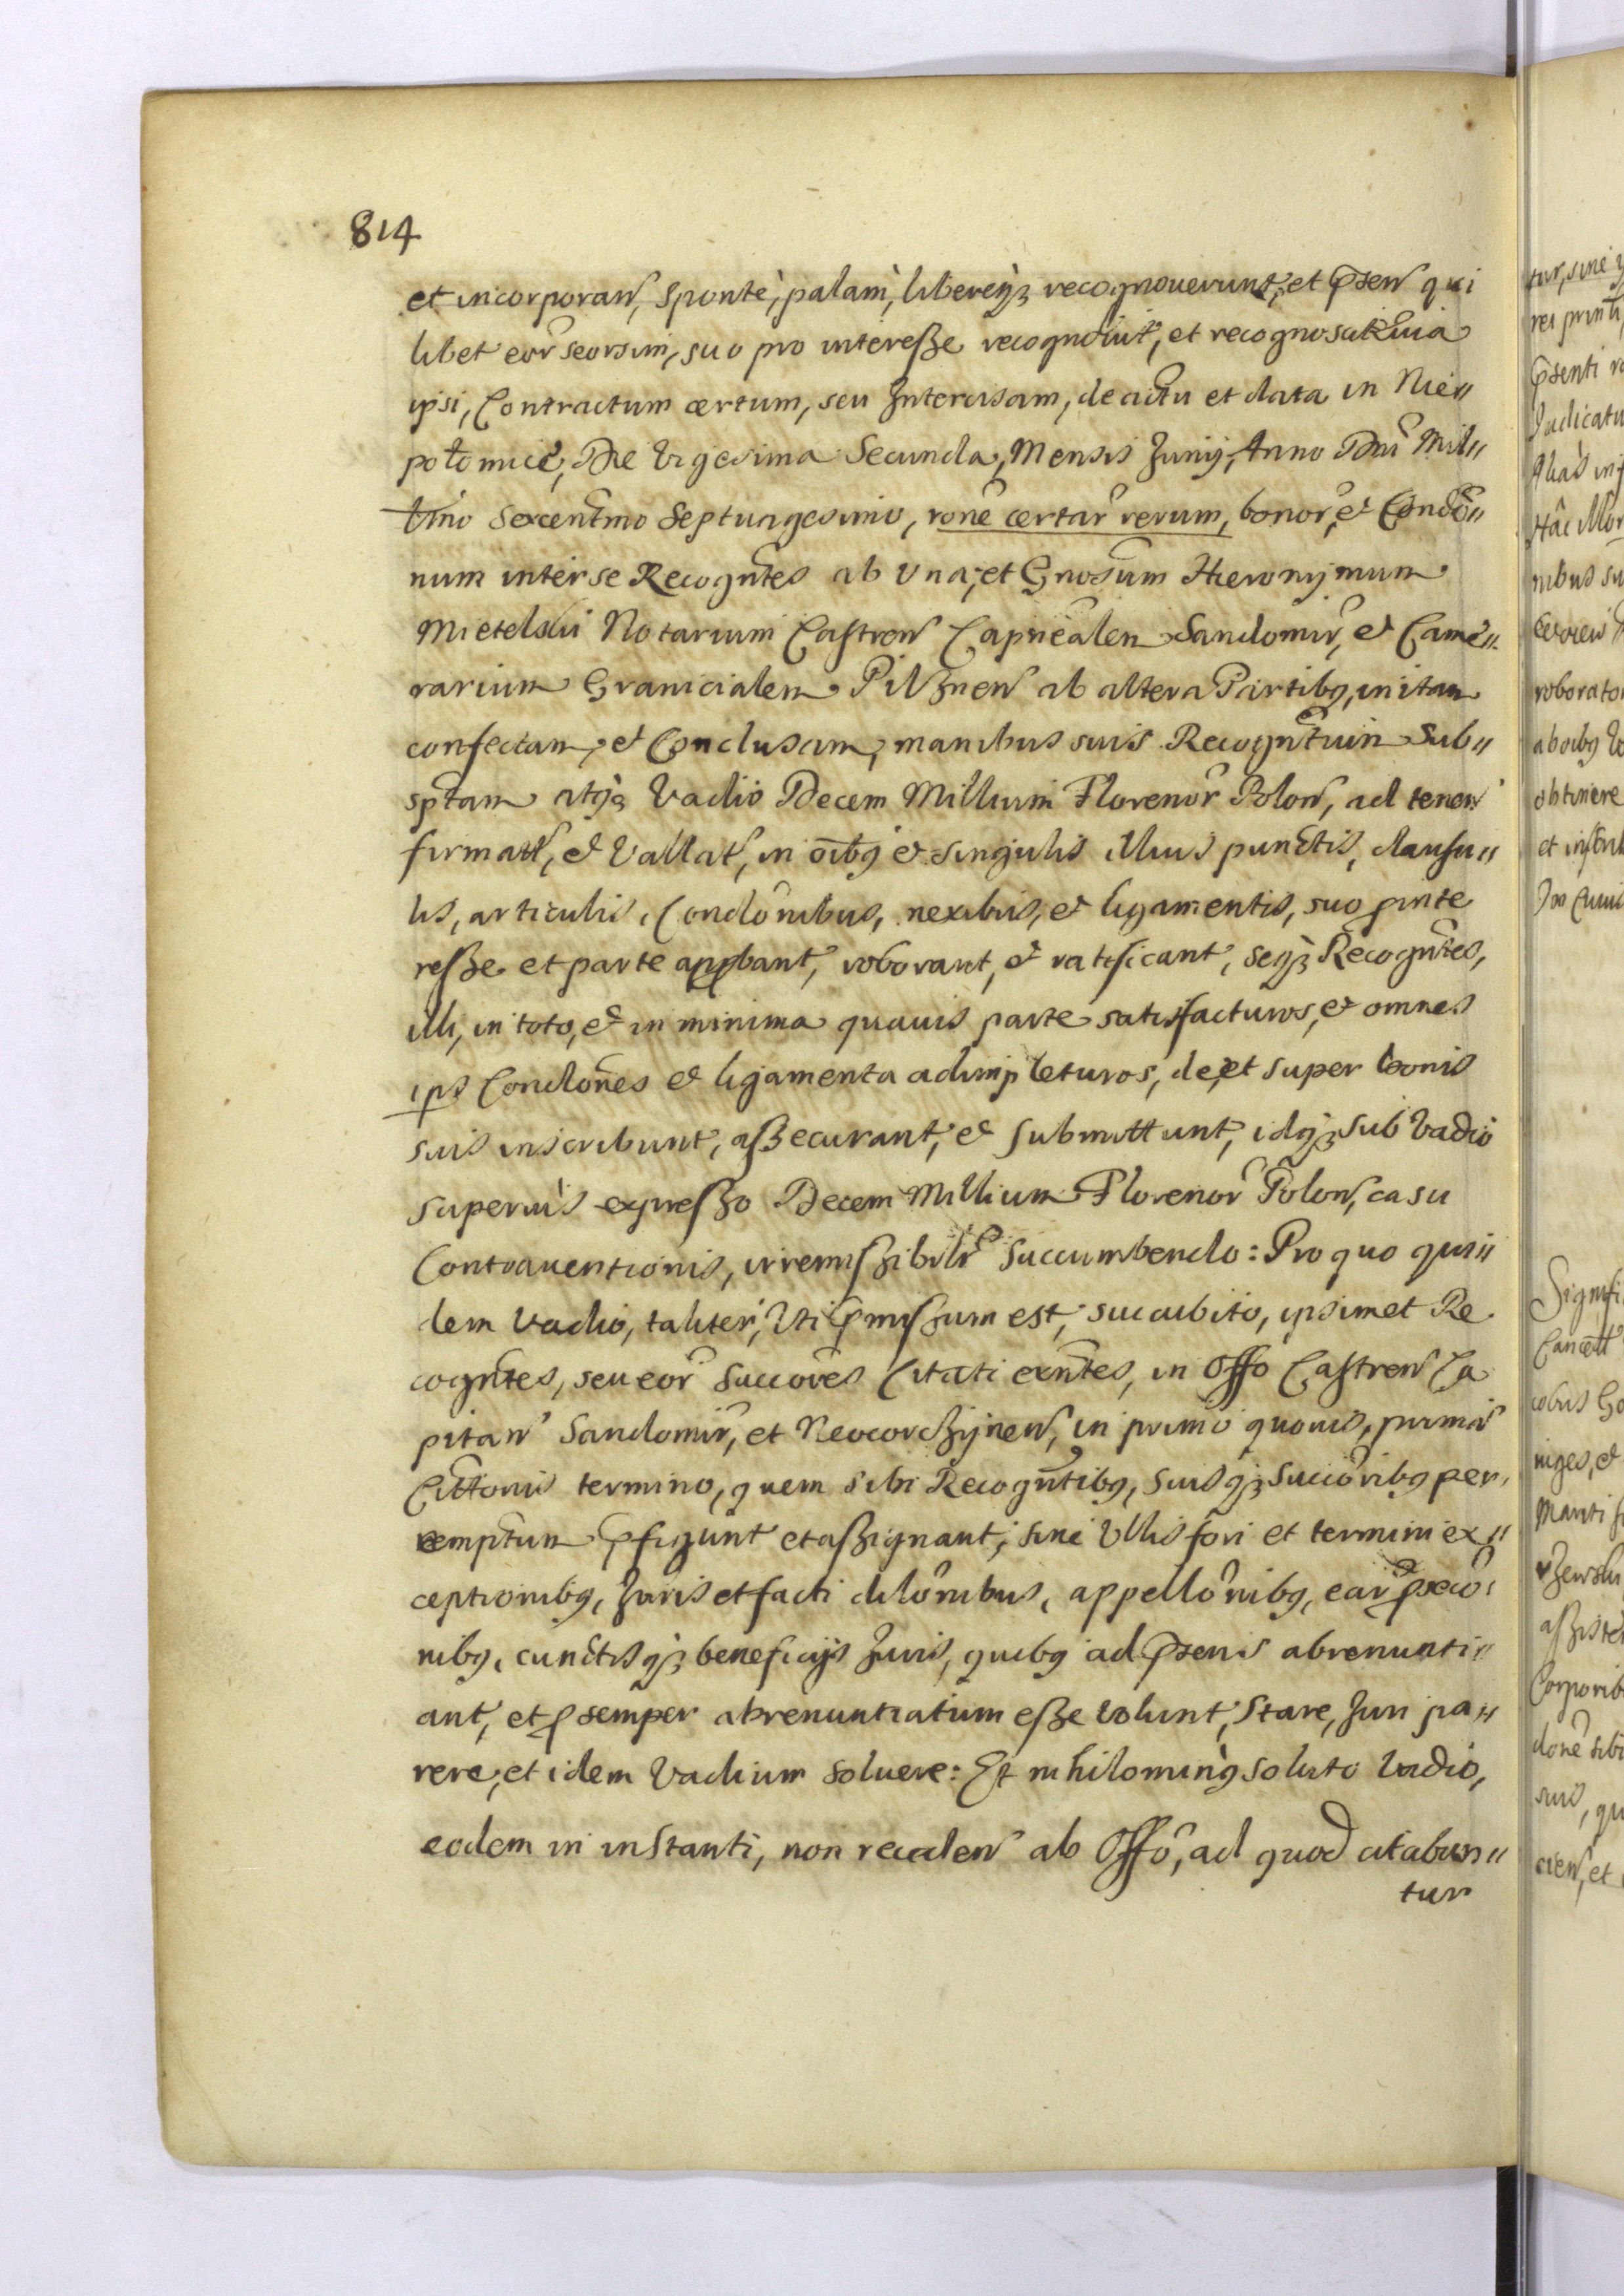 814
et incorporan, sponte, palam, libereqʒ recognouerunt, et p̃sen qui
libet eor̃ seorsim, suo pro interesse recognouit, et recognoscit quia
ipsi, Contractum certum, seu Intercisam, de actu et data in Nie〃
połomice, Die Vigesima Secunda, Mensis Junij, Anno Dñi Mill〃
lmo Sexcentmo Septuagesimo, rõne certar̃ rerum, bonor̃, et Condõ〃
num inter se Recogñtes ab Vna, et Gnosum Hieronymum
Mietelski Notarium Castren Capnealen Sandomir̃, et Came〃
rarium Granicialem Pilznen ab altera Partibꝯ, initam
confectam, et Conclusam, manibus suis Recogñtium sub〃
sptam atqʒ Vadio Decem Millium Florenor̃ Polon, ad tenen
firmatt, et Vallat, in oĩbꝯ et singulis illius punctis, clausu〃
lis, articulis, Condõnibus, nexibus, et ligamentis, suo p inte
resse et parte approbant, roborant, et ratificant, seqʒ Recogñtes,
illi, in toto, et in minima quauis parte satisfacturos, et omnes
ips Condõnes et ligamenta adimpleturos, de, et super bonis
suis inscribunt, assecurant, et submittunt, idqʒ sub Vadio
superius expresso Decem Millium Florenor̃ Polon, casu
Contrauentionis, irremissibilr̃ succumbendo: Pro quo qui〃
dem Vadio, taliter, Vti p̃missum est, succubito, ipsimet Re
cogñtes, seu eor̃ Succores Citati exñtes, in Offo Castren Ca
pitan Sandomir̃, et Neocorczynen, in primo quouis, primæ
Cittonis termino, quem sibi Recogñtibꝯ, suisqʒ succõribꝯ per
remptum p̃figunt et assignant, sine Vllis fori et termini ex〃
ceptionibꝯ, Juris et facti dilõnibus, appellõnibꝯ, ear̃ p̃secũ
nibꝯ, cunctisqʒ beneficijs Juris, quibꝯ ad p̃sens abrenunti〃
ant, et p semper abrenuntiatum esse volunt, Stare, Juri pa〃
rere, et idem Vadium soluere: Et nihilominꝯ soluto Vadio,
eodem in instanti, non receden ab Offõ, ad quod citabun〃
tur